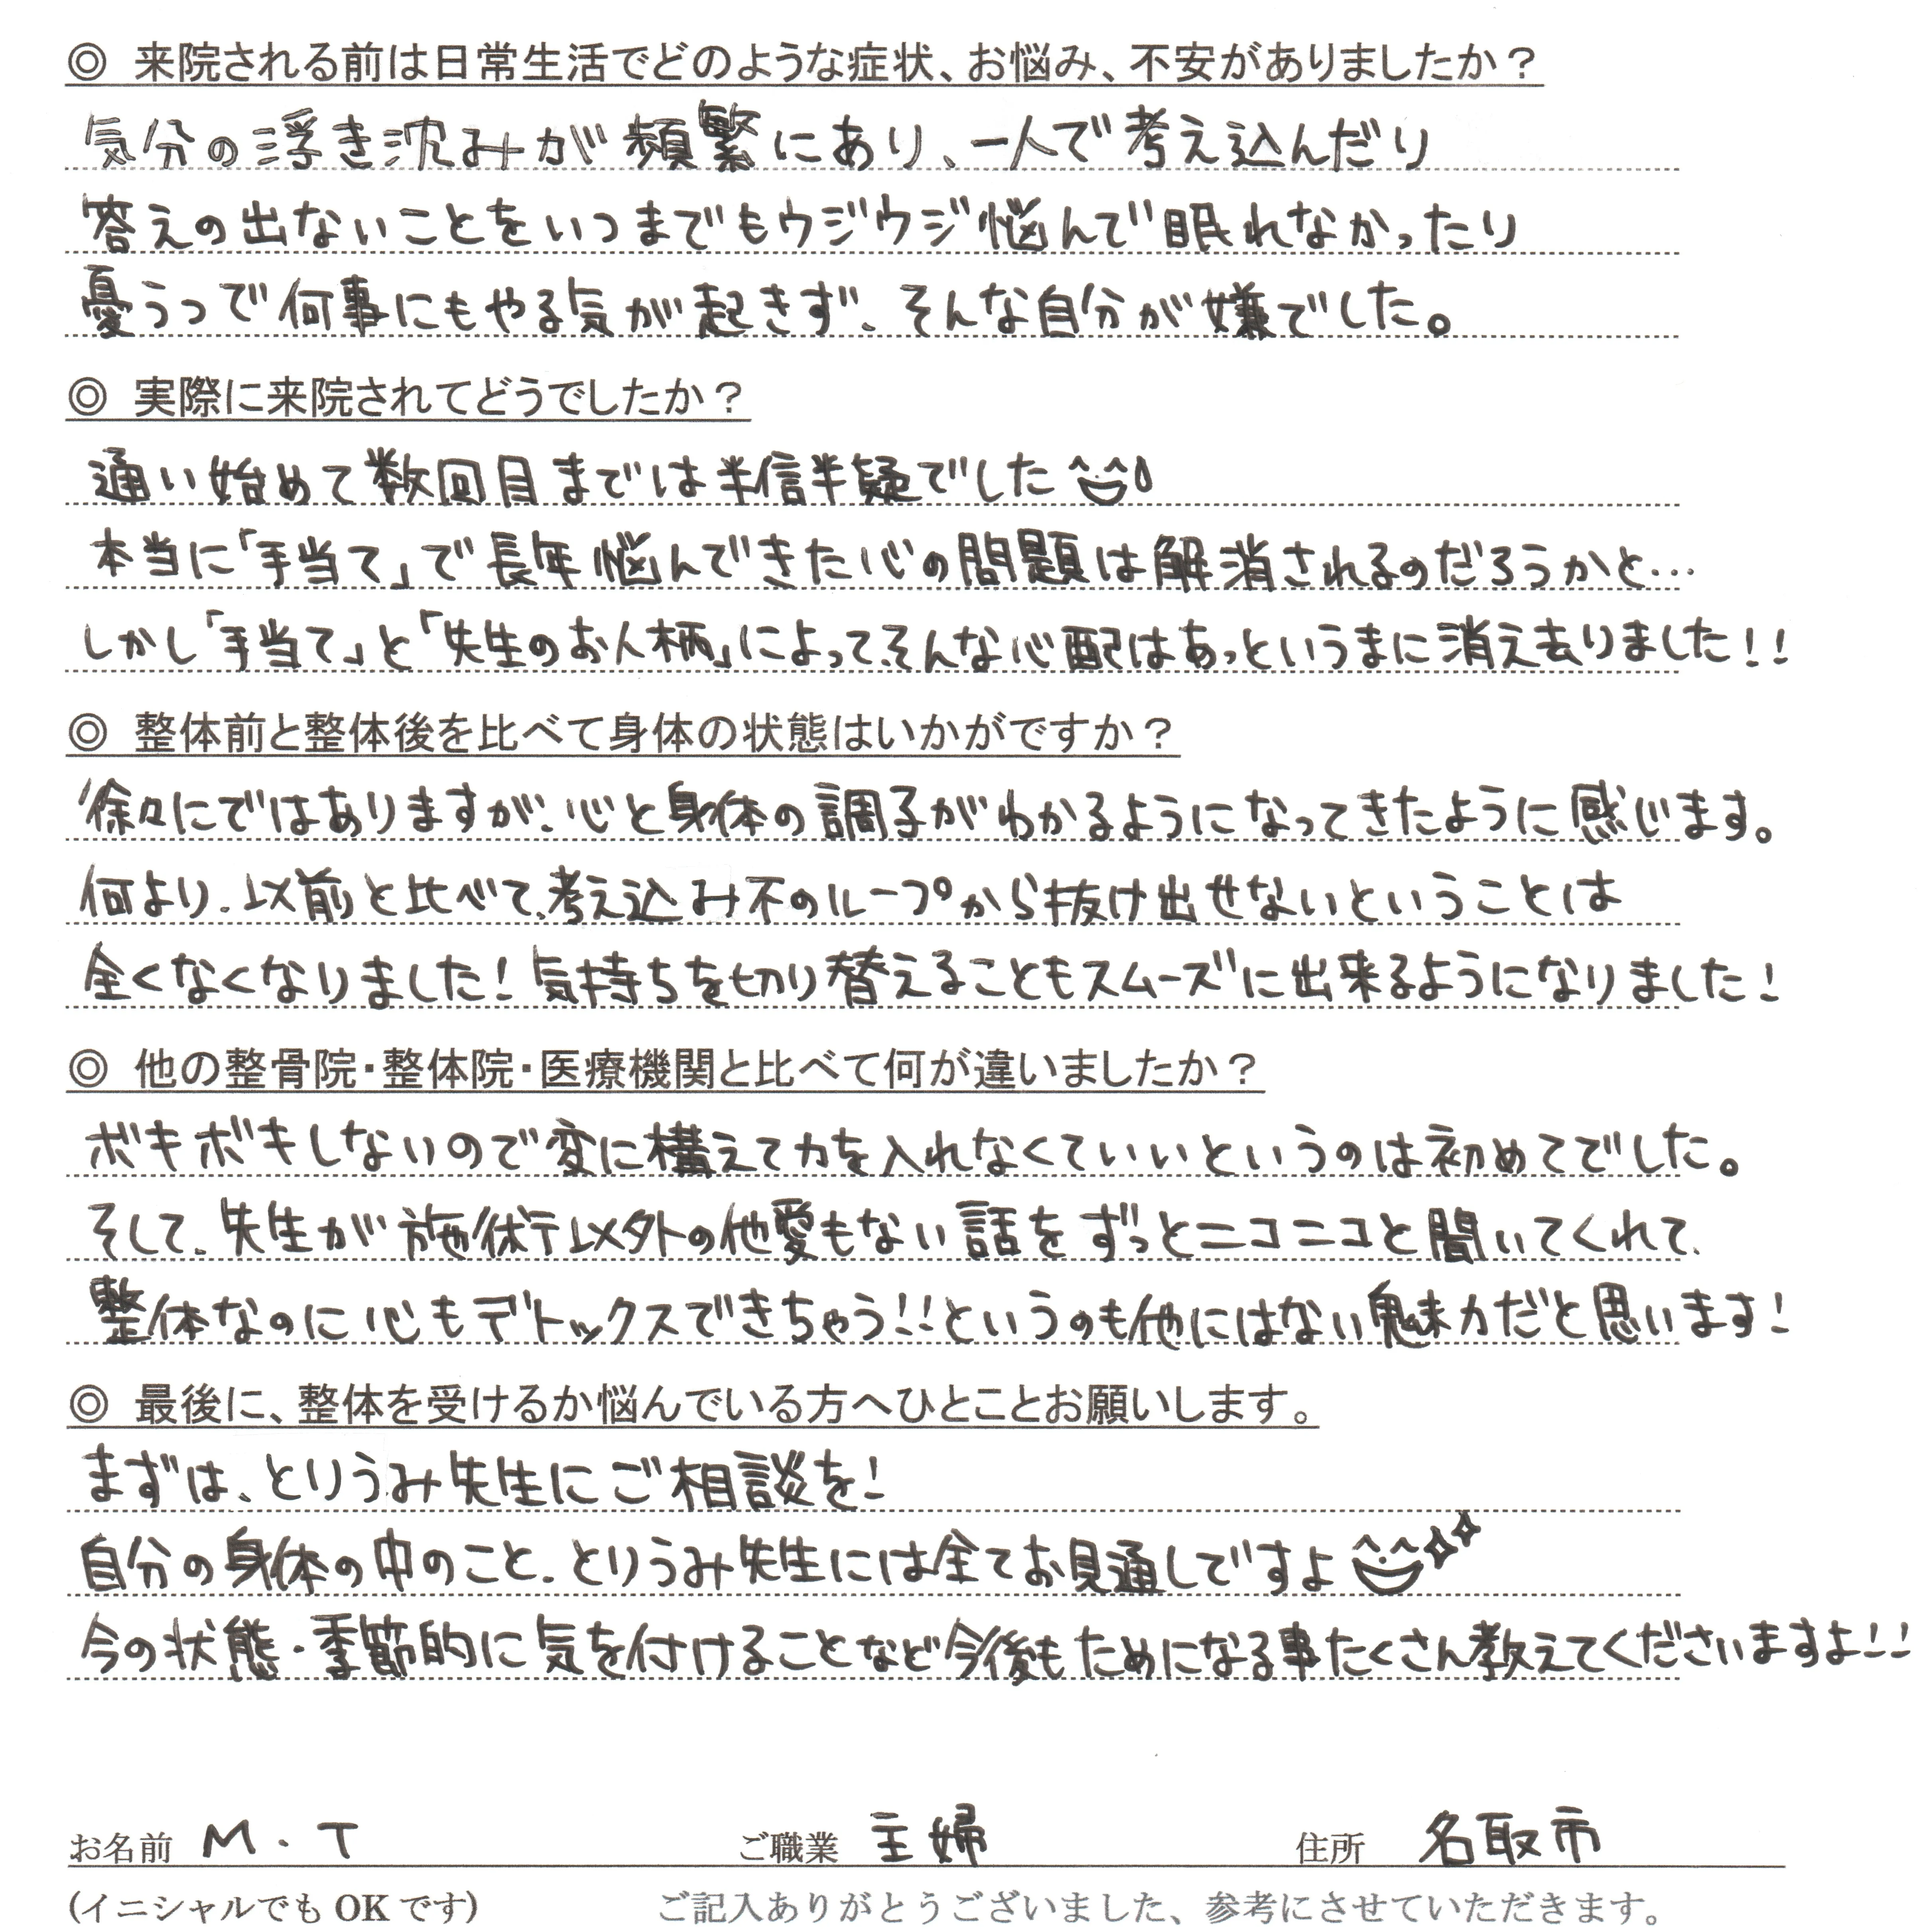 ◎ 来院される前は日常生活でどのような症状、お悩み、不安がありましたか？
気分の浮き沈みが頻繁にあり、一人で考え込んだり
答えの出ないことをいつまでもウジウジ悩んで眠れなかったり
憂うつで何事にもやる気が起きず、そんな自分が嫌でした。
◎ 実際に来院されてどうでしたか？
通い始めて数回目までは半信半疑でした
本当に「手当て」で長年悩んできた心の問題は解消されるのだろうかと…
しかし「手当て」と「先生のお人柄」によって、そんな心配はあっというまに消え去りました!!
◎ 整体前と整体後を比べて身体の状態はいかがですか？
徐々にではありますが、心と身体の調子がわかるようになってきたように感じます。
何より、以前と比べて、考え込み不のループから抜け出せないということは
全くなくなりました！気持ちを切り替えることもスムーズに出来るようになりました！
◎ 他の整骨院・整体院・医療機関と比べて何が違いましたか？
ボキボキしないので変に構えて力を入れなくていいというのは初めてでした。
そして、先生が施術以外の他愛もない話をずっとニコニコと聞いてくれて、
整体なのに心もデトックスできちゃう!!というのも他にはない魅力だと思います！
◎ 最後に、整体を受けるか悩んでいる方へひとことお願いします。
まずは、とりうみ先生にご相談を！
自分の身体の中のこと、とりうみ先生には全てお見通しですよ
今の状態・季節的に気を付けることなど今後もためになる事たくさん教えてくださいますよ!!
お名前 M・T ご職業 主婦 住所 名取市
(イニシャルでも OK です) ご記入ありがとうございました、参考にさせていただきます。